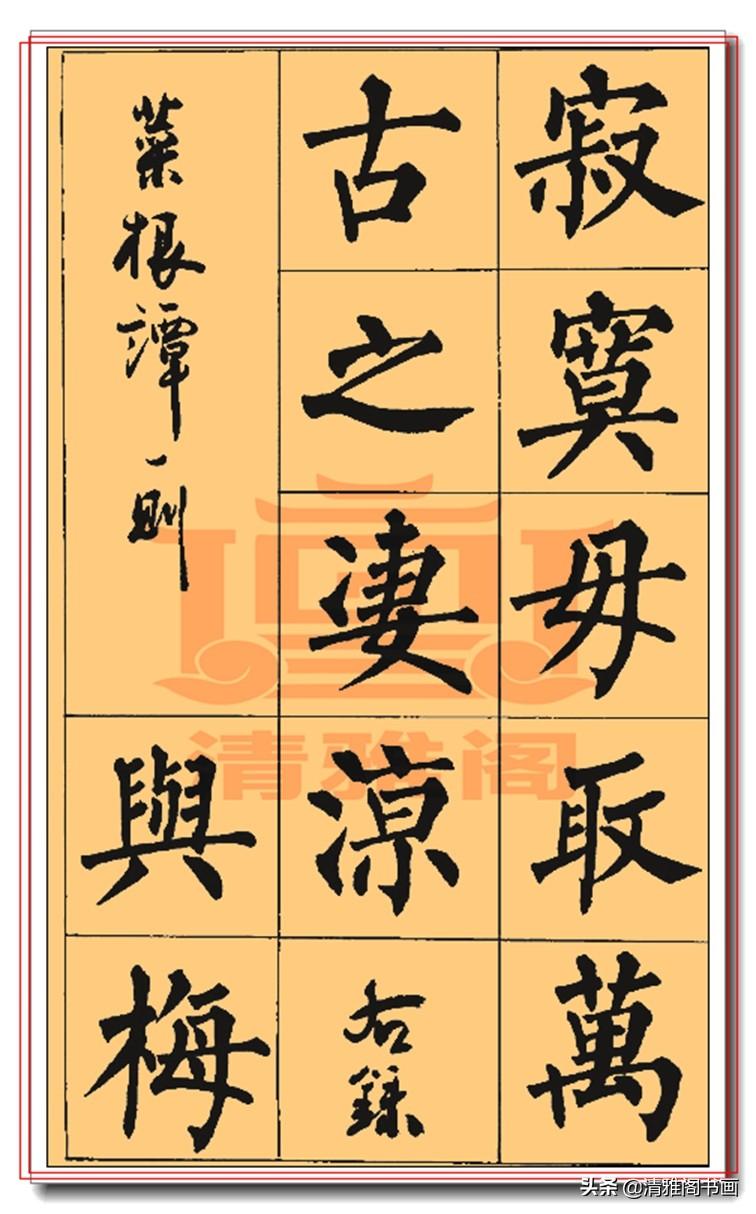 寂寞毋取萬
古之凄涼右錄
菜根譚一則
與梅
清雅阁
头条 @清雅阁书画